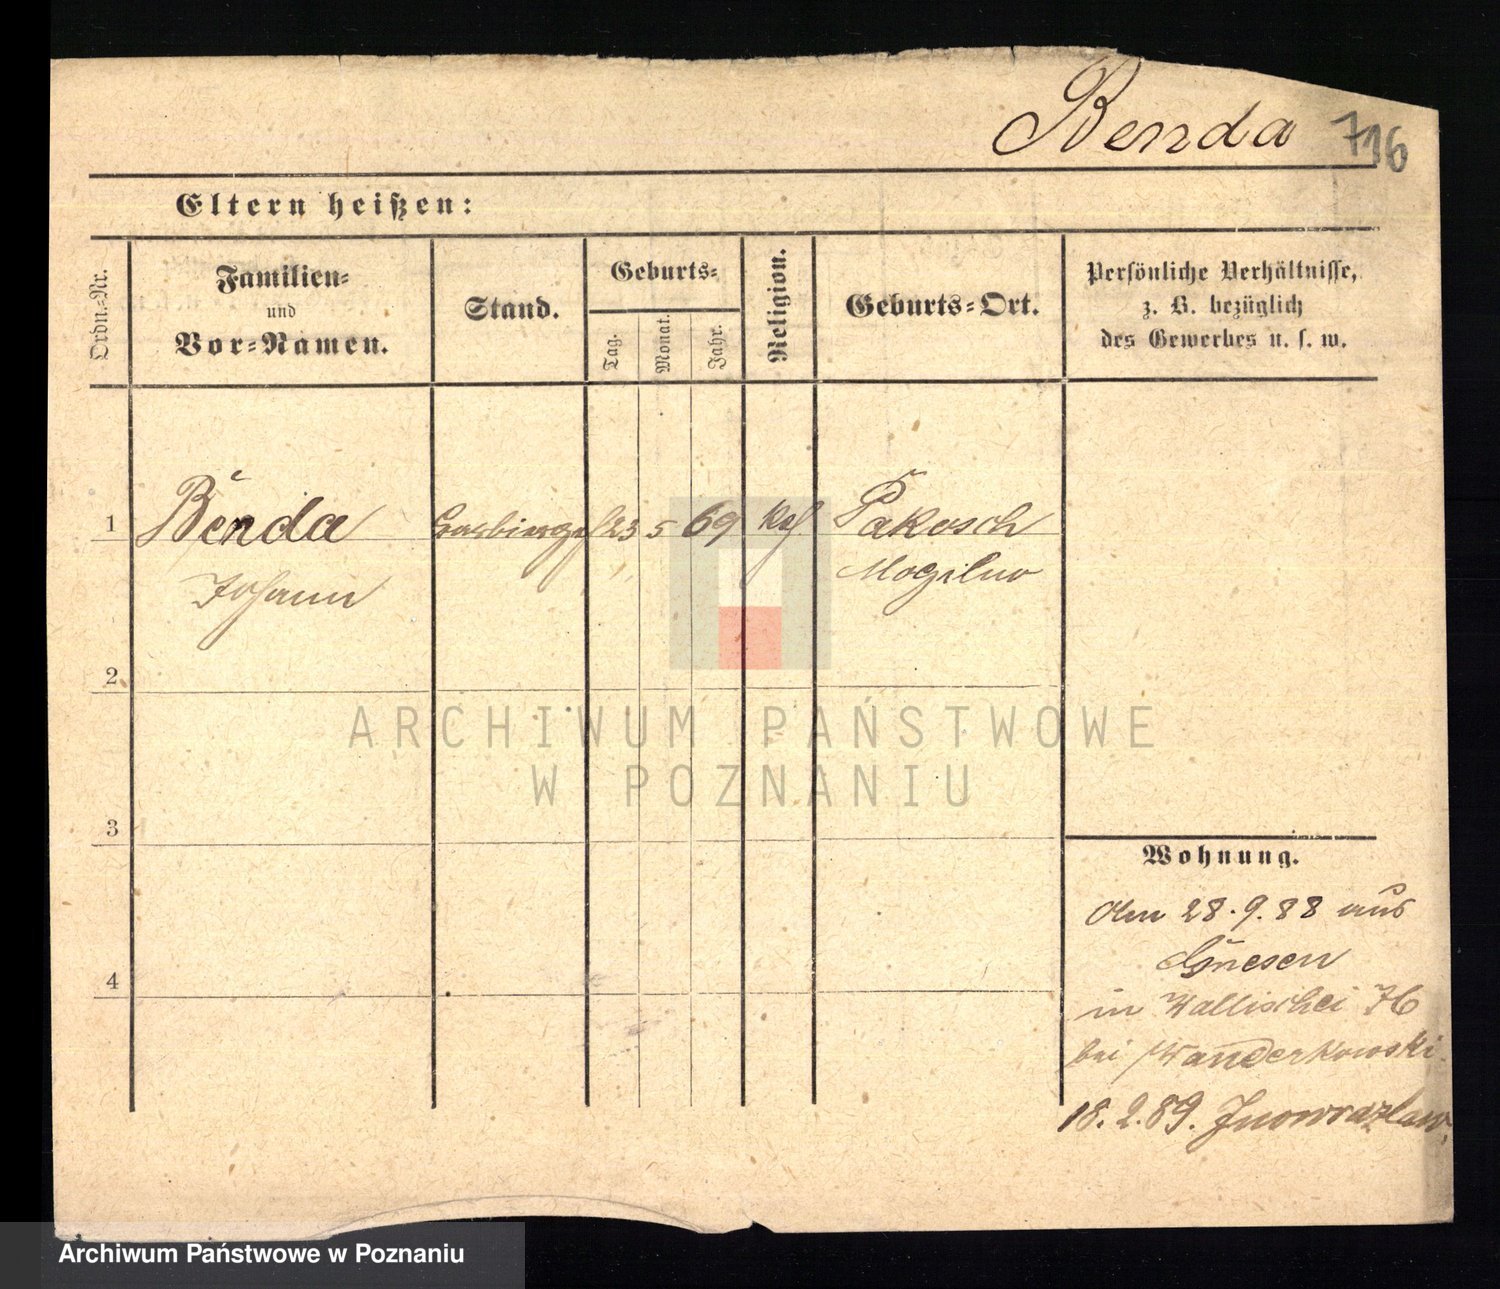 Benda 716
Eltern heißen:
Ordn.-Nr.
Familien-
und
Vor-Namen.
Stand.
Geburts-
Tag.
Monat.
Jahr.
Religion.
Geburts-Ort.
Persönliche Verhältnisse,
z. B. bezüglich
des Gewerbes u. s. w.
1 Benda 23 5 69 kaf. Pakosch
Johann Mogilno
2
3
4
Wohnung.
Am 28.9.88 aus
Gnesen
in Wallischei 76
bei Wanderkowski.
18.2.89. Inowrazlaw.
ARCHIWUM PAŃSTWOWE
W POZNANIU
Archiwum Państwowe w Poznaniu